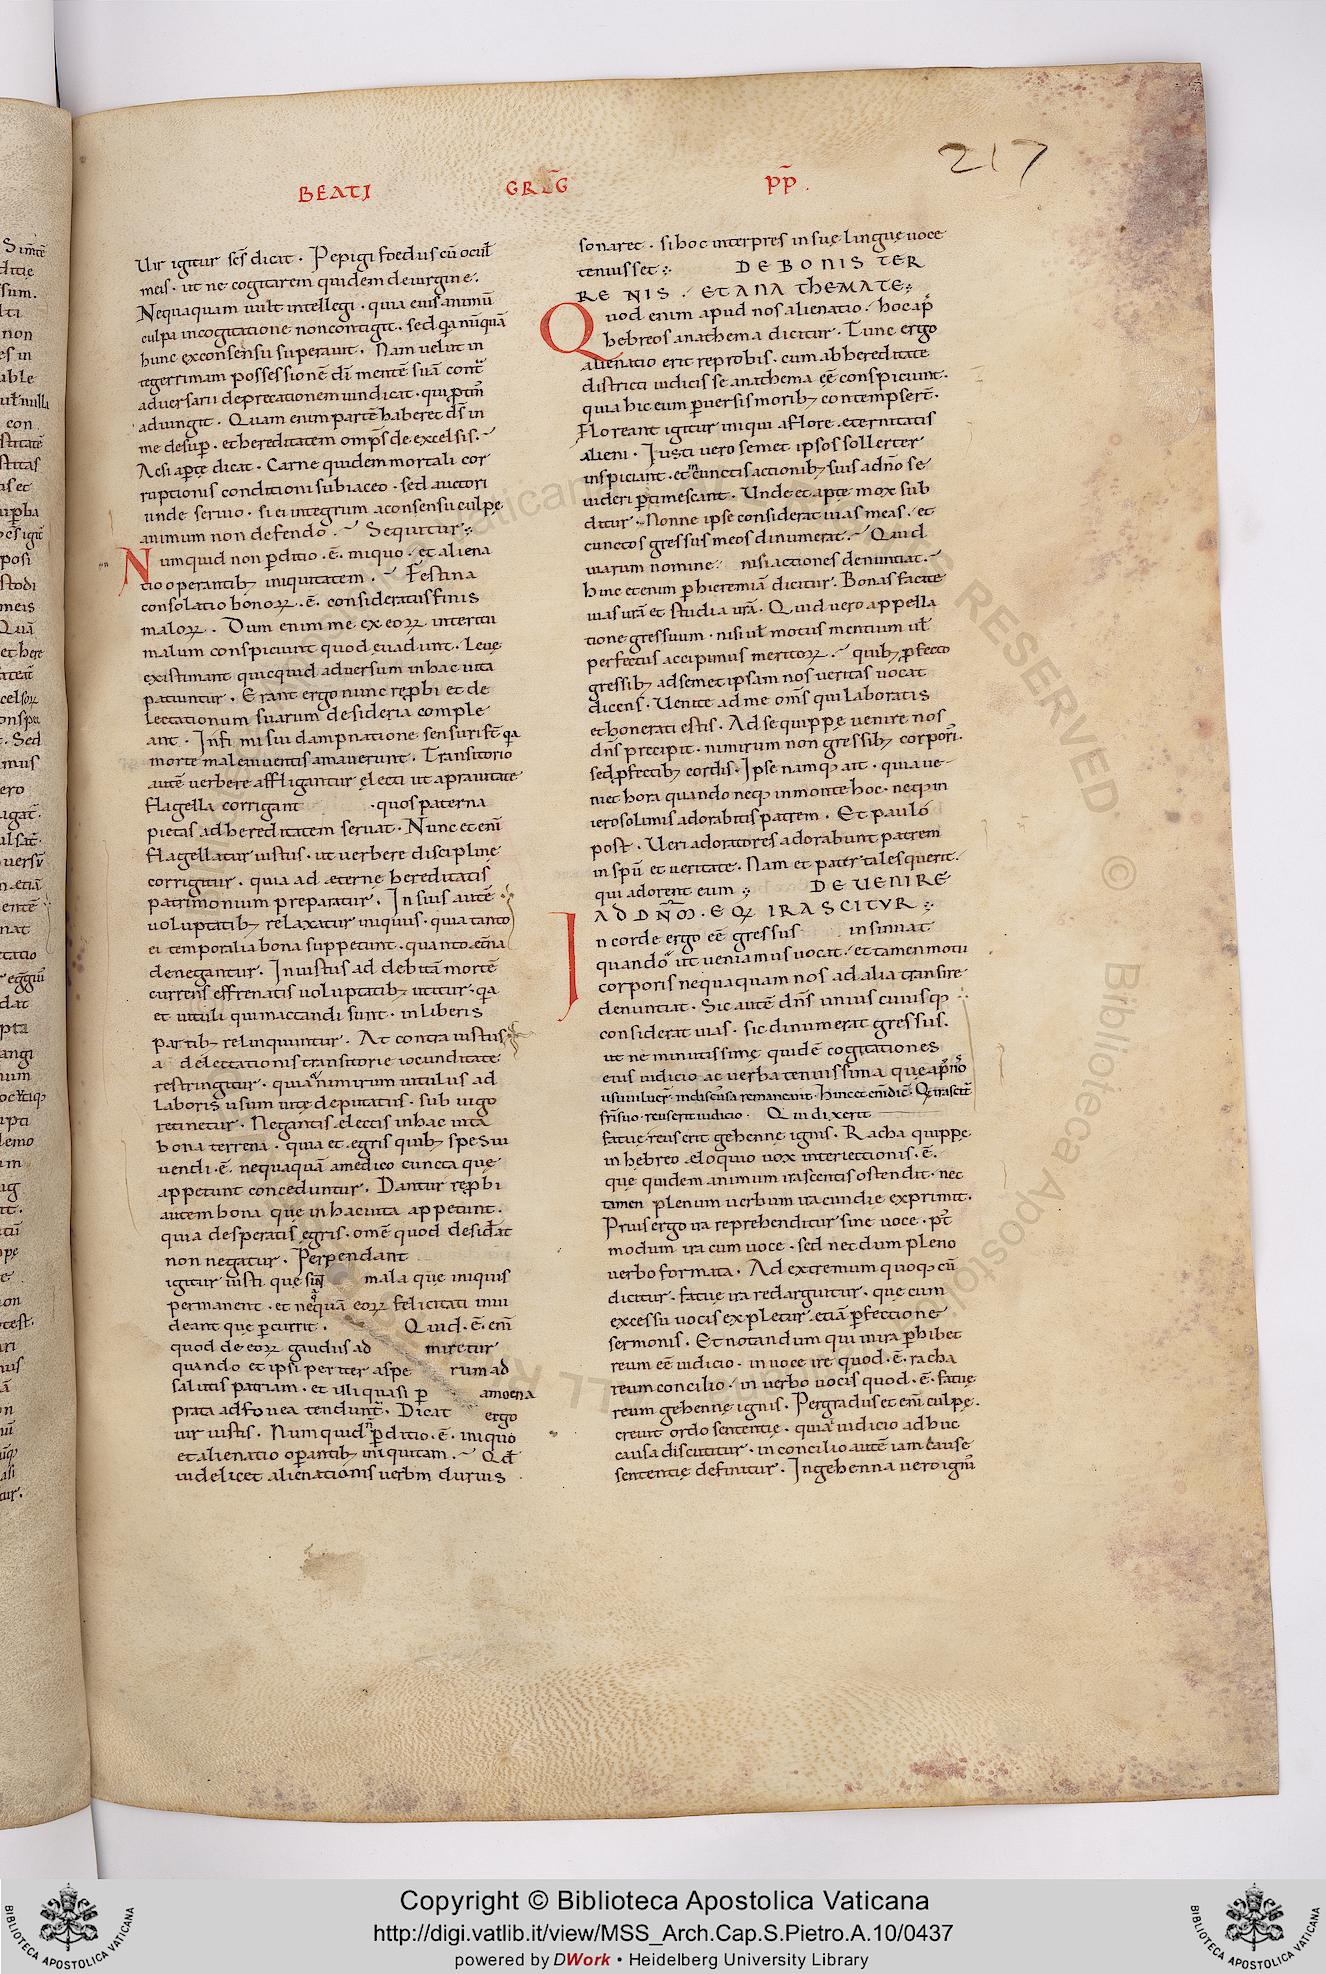 217
BEATI GREG PP̄.
Vir igitur sc̄s dicit . Pepigi foedus cū ocul̄
meis . ut ne cogitarem quidem de uirgine .
Nequaquam uult intellegi . quia eius animū
culpa in cogitatione non contigit . sed q̄a nūquā
hunc ex consensu superauit . Nam uelut in
tegerrimam possessionē dī mentē suā cont̄
aduersarii deprecationem uindicat . qui ꝓtin̄
adiungit . Quam enim partē haberet ds̄ in
me desup̄ . et hereditatem omp̄s de excelsis .
Ac si ap̄te dicat . Carne quidem mortali cor
ruptionis conditioni subiaceo . sed auctori
unde seruio . si ei integrum a consensu culpę
animum non defendo . Sequitur :
Numquid non p̄ditio . ē . iniquo . et aliena
tio operantibꝫ iniquitatem . Festina
consolatio bonoꝝ . ē . consideratus finis
maloꝝ . Dum enim me ex eoꝝ interitu
malum conspiciunt quod euadunt . Leue
existimant quicquid aduersum in hac uita
patiuntur . Erant ergo nunc rep̄bi et de
lectationum suarum desideria comple
ant . In fi mi sui dampnatione sensuri s̄t q̄a
morte male uiuentis amauerunt . Transitorio
autē uerbere affligantur electi ut a prauitate
flagella corrigant . quos paterna
pietas ad hereditatem seruat . Nunc et eni
flagellatur iustus . ut uerbere discipline
corrigitur . quia ad ęternę hereditatis
patrimonium preparatur . In suis autē
uoluptatibꝫ relaxatur iniquus . quia tanto
ei temporalia bona suppetunt . quanto et̄na
denegantur . Iniustus ad debitā mortē
currens effrenatis uoluptatibꝫ utitur . q̄a
et uituli qui mactandi sunt . in liberis
partibꝫ relinquuntur . At contra iustus
a delectationis transitorie iocunditate
restringitur . quia nimirum uitulus ad
laboris usum uitę deputatus . sub iugo
retinetur . Negantur electis in hac uita
bona terrena . quia et egris quibꝫ spes ui
uendi . ē . nequaquā a medico cuncta quę
appetunt conceduntur . Dantur rep̄bi
autem bona que in hac uita appetunt .
quia desperatis ęgris . omē quod desid̄at
non negatur . Perpendant
igitur iusti quę sin̄ mala que iniquis
permanent . et neq̄quā eoꝝ felicitati inui
deant quę p̄currit . Quid . ē . eni
quod de eoꝝ gaudiis ad miretur
quando et ipsi per iter aspe rum ad
salutis patriam . et illi quasi p̄ amoena
prata ad fouea tendunt̄ . Dicat ergo
uir iustis . Numquid n̄ p̄ditio . ē . iniquo
et alienatio op̄antibꝫ iniquitatem . Qd̄
uidelicet alienationis uerbm durius
sonaret . si hoc interpres in suę linguę uoce
tenuisset : DE BONIS TER
RENIS . ET ANATHEMATE :
Quod enim apud nos alienatio . hoc ap̄
hebreos anathema dicitur . Tunc ergo
alienatio erit reprobis . cum ab hereditate
districti iudicis se anathema eē conspiciunt .
quia hic eum p̄uersis moribꝫ contempser̄t .
Floreant igitur iniqui a flore . eternitatis
alieni . Iusti uero semet ipsos sollerter
inspiciant . et in cunctis actionibꝫ suis a dn̄o se
uideri p̄timescant . Unde et apte mox sub
ditur . Nonne ipse considerat uias meas . et
cunctos gressus meos dinumerat . Quid
uiarum nomine nisi actiones denuntiat .
hinc etenim p̄ hieremiā dicitur . Bonas facite
uias urā et studia urā . Quid uero appella
tione gressuum . nisi ul̄ motus mentium ul̄
perfectus accipimus meritoꝝ . quibꝫ p̄fecto
gressibꝫ ad semet ipsam nos ueritas uocat
dicens . Uenite ad me oms qui laboratis
et honerati estis . Ad se quippe uenire nos
dn̄s precipit . nimirum non gressibꝫ corpori .
sed ꝓfectibꝫ cordis . Ipse namqꝫ ait . quia ue
niet hora quando neqꝫ in monte hoc . neqꝫ in
ierosolimis adorabitis patrem . Et pauló
post . Ueri adoratores adorabunt patrem
in spū et ueritate . Nam et pater tales querit .
qui adorent eum : DE UENIRE
AD DN̄M . EQꝝ IRASCITUR :
In corde ergo eē gressus insinuat
quando ut ueniamus uocat . et tamen motu
corporis nequaquam nos ad alia transire
denuntiat . Sic autē dn̄s unius cuiusqꝫ
considerat uias . sic dinumerat gressus .
ut ne minutissime quidē cogitationes
eius iudicio ac uerba tenuissima que ap̄ nos
Qui irascit̄
fr̄i suo . reus erit iudicio . Qui dixerit
fatue reus erit gehenne ignis . Racha quippe
in hebreo eloquio uox interiectionis . ē .
que quidem animum irascentis ostendit . nec
tamen plenum uerbum iracundie exprimit .
Prius ergo ira reprehenditur sine uoce . p̄t
modum ira cum uoce . sed nec dum pleno
uerbo formata . Ad extremum quoqꝫ cū
dicitur . fatue ira redarguitur . que cum
excessu uocis expletur etiā p̄fectione
sermonis . Et notandum qui in ira p̄hibet
reum eē iudicio . in uoce ire quod . ē . racha
reum concilio . in uerbo uocis quod . ē . fatue
reum gehenne ignis . Per gradus et eni culpe .
creuit ordo sententie . quia iudicio adhuc
causa discutitur . in concilio autē iam cause
sententie definitur . In gehenna uero igni
Copyright © Biblioteca Apostolica Vaticana
http://digi.vatlib.it/view/MSS_Arch.Cap.S.Pietro.A.10/0437
powered by DWork • Heidelberg University Library
BIBLIOTECA APOSTOLICA VATICANA
BIBLIOTECA APOSTOLICA VATICANA